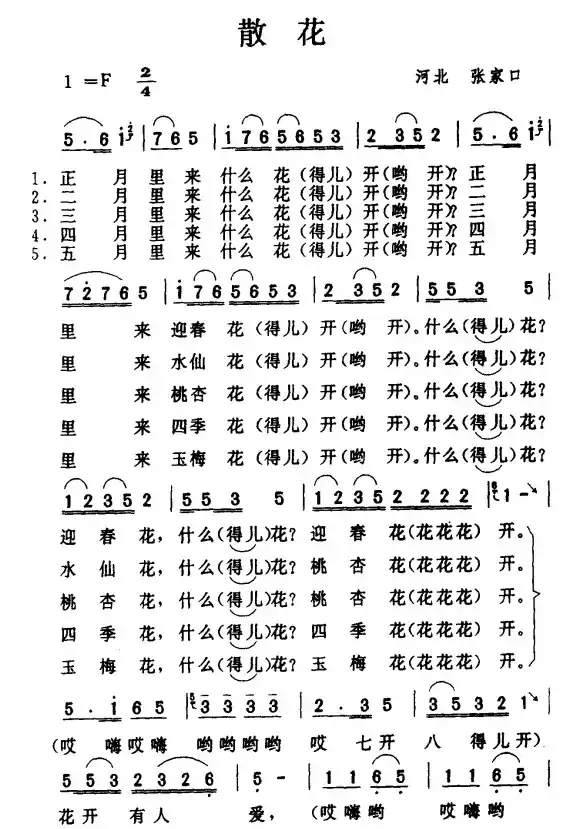 散花
1=F 2/4 河北 张家口
5·6 i 2 | 765 | i765653 | 2 352 | 5·6 i 2 |
1.正月里来什么花(得儿)开(哟开)?正月
2.二月里来什么花(得儿)开(哟开)?二月
3.三月里来什么花(得儿)开(哟开)?三月
4.四月里来什么花(得儿)开(哟开)?四月
5.五月里来什么花(得儿)开(哟开)?五月
72765 | i765653 | 2 352 | 553 5 |
里来迎春花(得儿)开(哟开)。什么(得儿)花?
里来水仙花(得儿)开(哟开)。什么(得儿)花?
里来桃杏花(得儿)开(哟开)。什么(得儿)花?
里来四季花(得儿)开(哟开)。什么(得儿)花?
里来玉梅花(得儿)开(哟开)。什么(得儿)花?
12352 | 553 5 | 1235 2 222 | 1 - |
迎春花,什么(得儿)花?迎春花(花花花)开。
水仙花,什么(得儿)花?桃杏花(花花花)开。
桃杏花,什么(得儿)花?桃杏花(花花花)开。
四季花,什么(得儿)花?四季花(花花花)开。
玉梅花,什么(得儿)花?玉梅花(花花花)开。
5·i 65 | 3 3 3 3 | 2·35 | 3532 1 |
(哎嗨哎嗨哟哟哟哟哎七开八得儿开)
553 2326 | 5 - | 1165 | 1165 |
花开有人爱,(哎嗨哟哎嗨哟